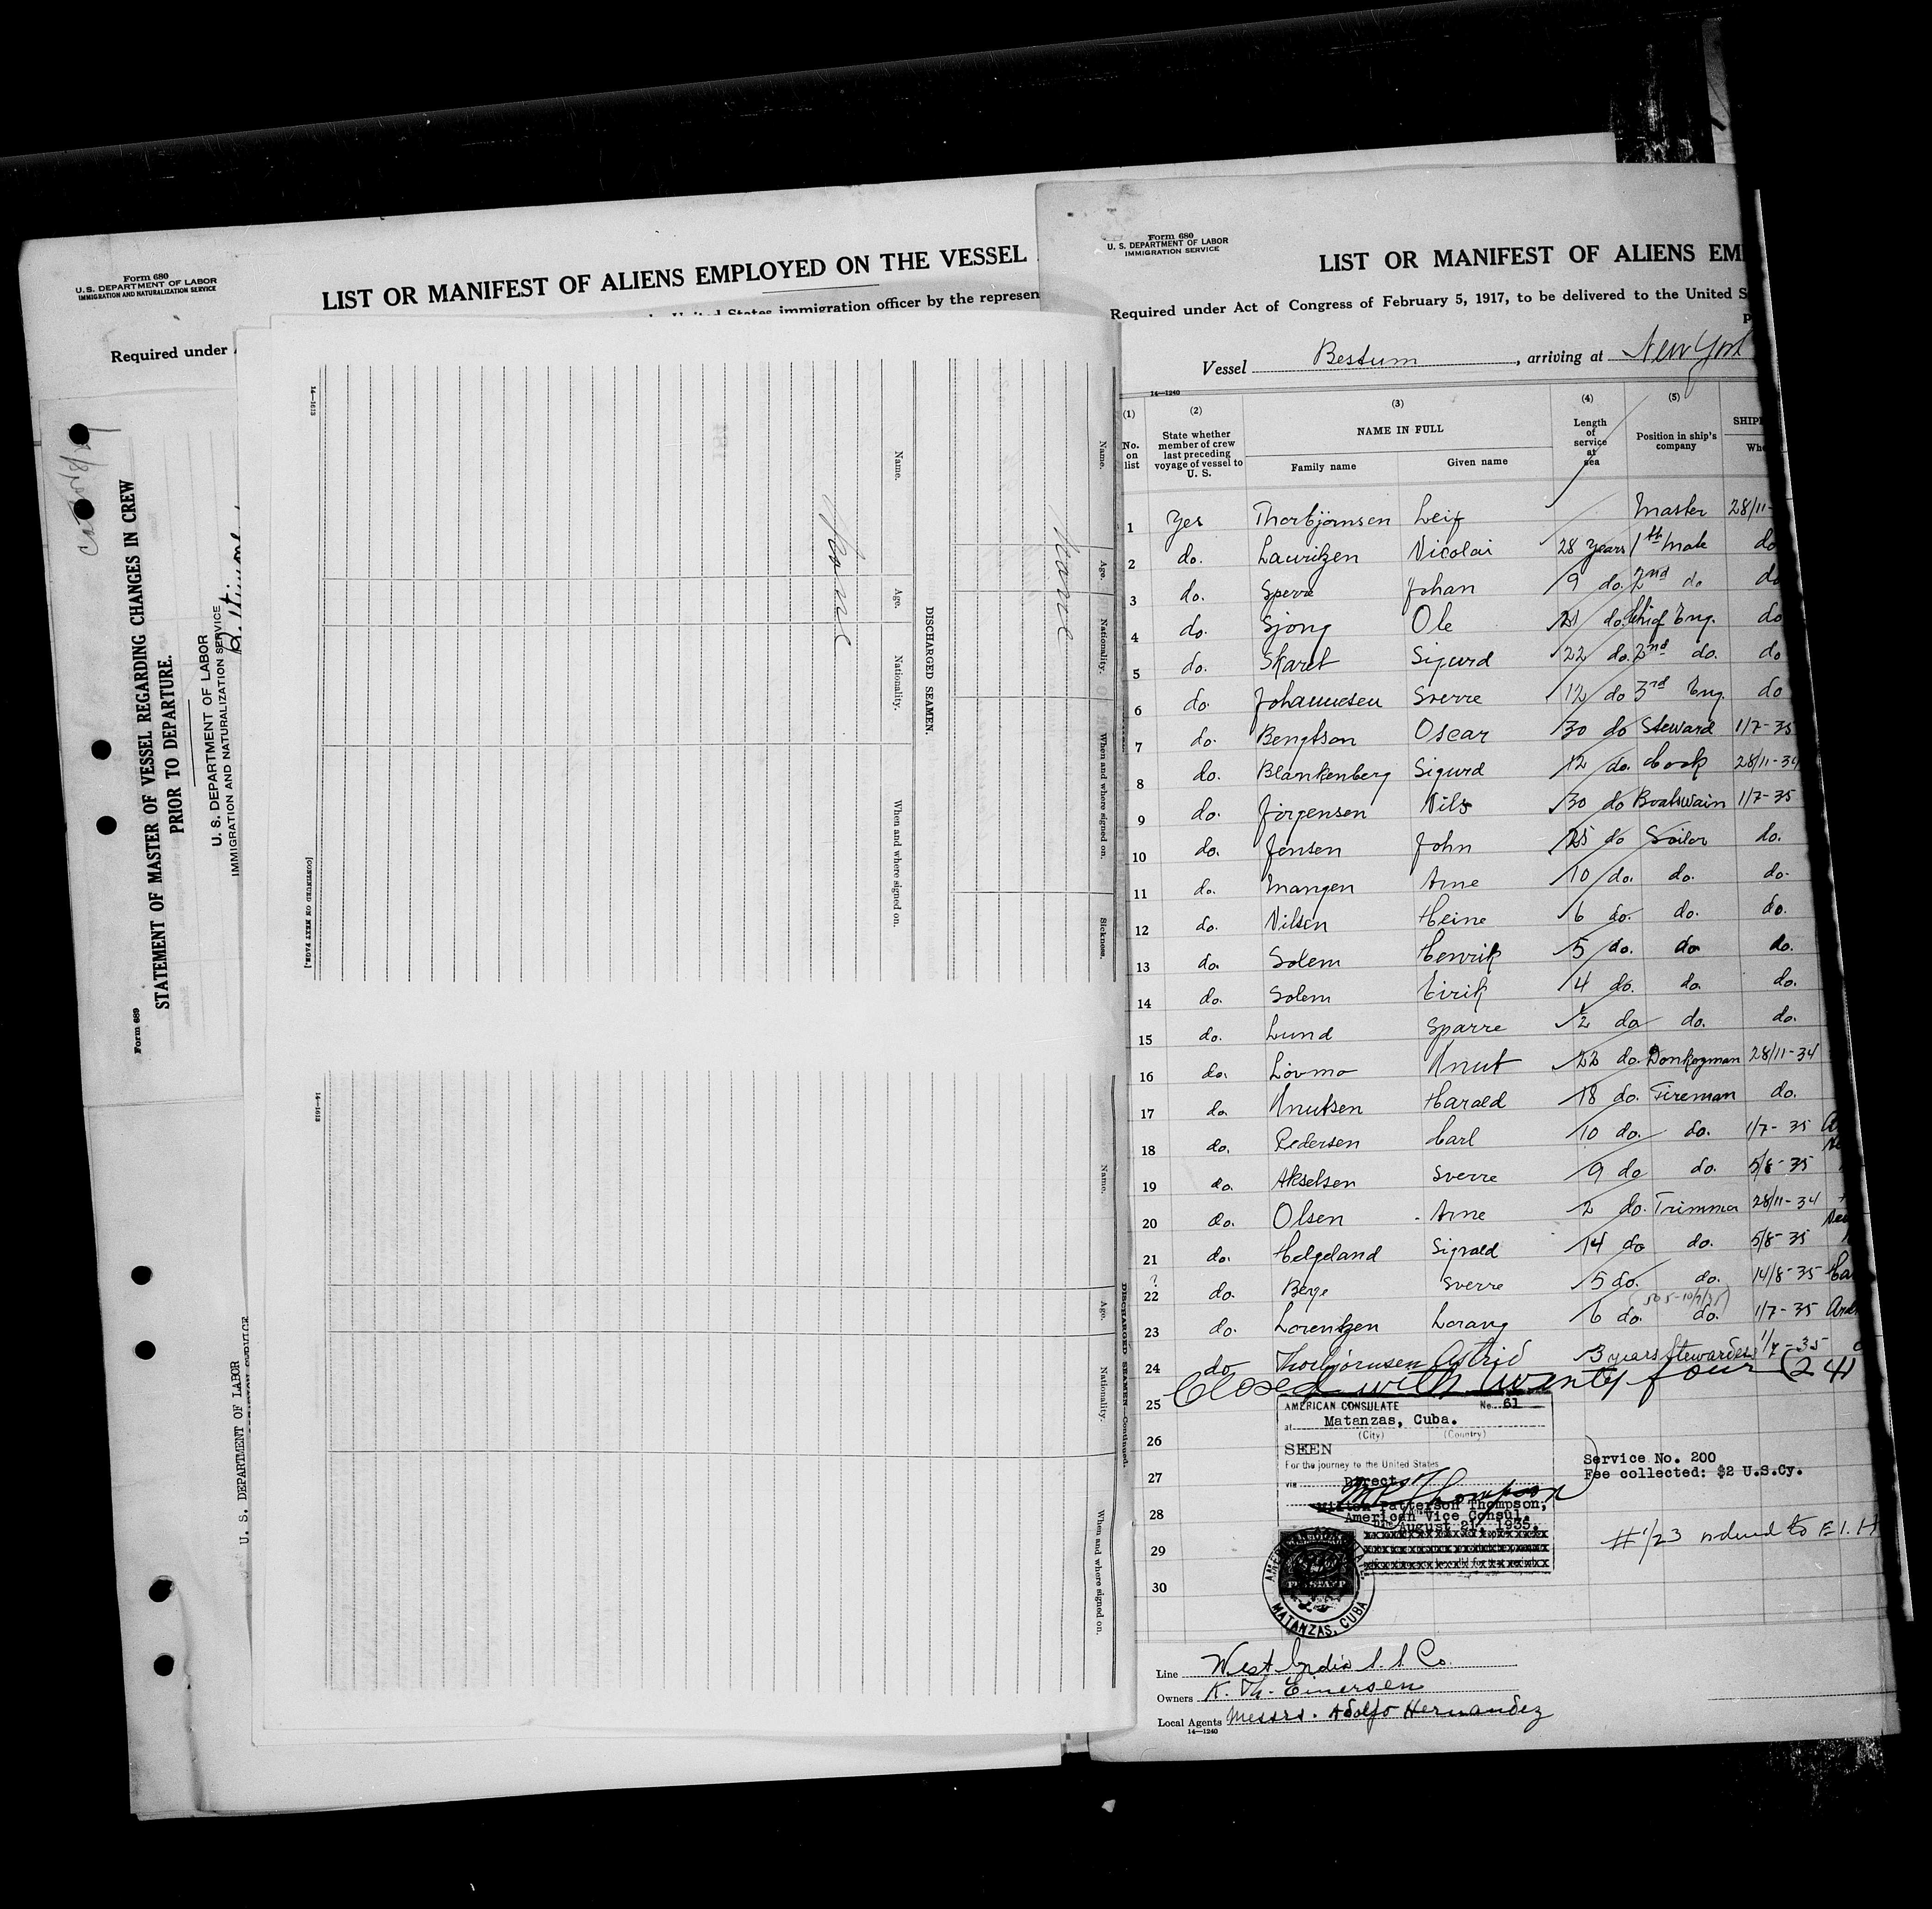 Form 680
U. S. DEPARTMENT OF LABOR
IMMIGRATION AND NATURALIZATION SERVICE
LIST OR MANIFEST OF ALIENS EMPLOYED ON THE VESSEL
United States immigration officer by the represen
Required under
STATEMENT OF MASTER OF VESSEL REGARDING CHANGES IN CREW
PRIOR TO DEPARTURE.
U. S. DEPARTMENT OF LABOR
IMMIGRATION AND NATURALIZATION SERVICE
Form 689
U. S. DEPARTMENT OF LABOR
Name. Age. Nationality. When and where signed on. Sickness.
None
DISCHARGED SEAMEN.
Name. Age. Nationality. When and where signed on.
None
[CONTINUED ON NEXT PAGE.]
14—1613
DISCHARGED SEAMEN—Continued.
Name. Age. Nationality. When and where signed on.
14—1613
Form 680
U. S. DEPARTMENT OF LABOR
IMMIGRATION SERVICE
LIST OR MANIFEST OF ALIENS EM
Required under Act of Congress of February 5, 1917, to be delivered to the United S
Vessel Bestum, arriving at New York
14—1240
(1) (2) (3) (4) (5)
No. on list State whether member of crew last preceding voyage of vessel to U. S. NAME IN FULL Length of service at sea Position in ship's company SHIP
Family name Given name Wh
1 Yes Thorbjörnsen Leif Master 28/11-
2 do. Lauritzen Nicolai 28 years 1th Mate do
3 do. Sperre Johan 9 do. 2nd do do
4 do. Sjong Ole 21 do. Chief Eng. do
5 do. Skaret Sigurd 22 do. 2nd do. do
6 do. Johannesen Sverre 12 do 3rd Eng. do
7 do. Bengtson Oscar 30 do Steward 1/7-35
8 do. Blankenberg Sigurd 12 do. Cook 28/11-34
9 do. Jörgensen Nils 30 do Boatswain 1/7-35
10 do. Jensen John 25 do Sailor do.
11 do. Mangen Arne 10 do. do. do.
12 do. Nilsen Heine 6 do. do. do.
13 do. Solem Henrik 5 do. do do.
14 do. Solem Eirik 4 do. do. do.
15 do. Lund Sparre 2 do do. do.
16 do. Lövmo Knut 22 do. Donkeyman 28/11-34
17 do. Knutsen Harald 18 do. Fireman do.
18 do. Pedersen Carl 10 do. do. 1/7-35
19 do. Akselsen Sverre 9 do do. 5/8-35
20 do. Olsen Arne 2 do. Trimmer 28/11-34
21 do. Helgeland Sigvald 14 do do. 5/8-35
?
22 do. Berge Sverre 5 do. do. 14/8-35
23 do. Lorentzen Lorang 6 do. do. 1/7-35
24 do Thorbjörnsen Astrid 3 years Stewardess 1/7-35
Closed with twenty four (24)
25
26
27
28
29
30
AMERICAN CONSULATE No. 61
at Matanzas, Cuba.
(City) (Country)
SEEN
For the journey to the United States
via Direct
Milton Patterson Thompson,
American Vice Consul.
August 21, 1935.
AMERICAN CONSULATE
FEE STAMP
MATANZAS, CUBA
Service No. 200
Fee collected: $2 U.S.Cy.
Line West India S. S. Co.
Owners K. Th. Einersen
Local Agents Messrs. Adolfo Hernandez
14—1240